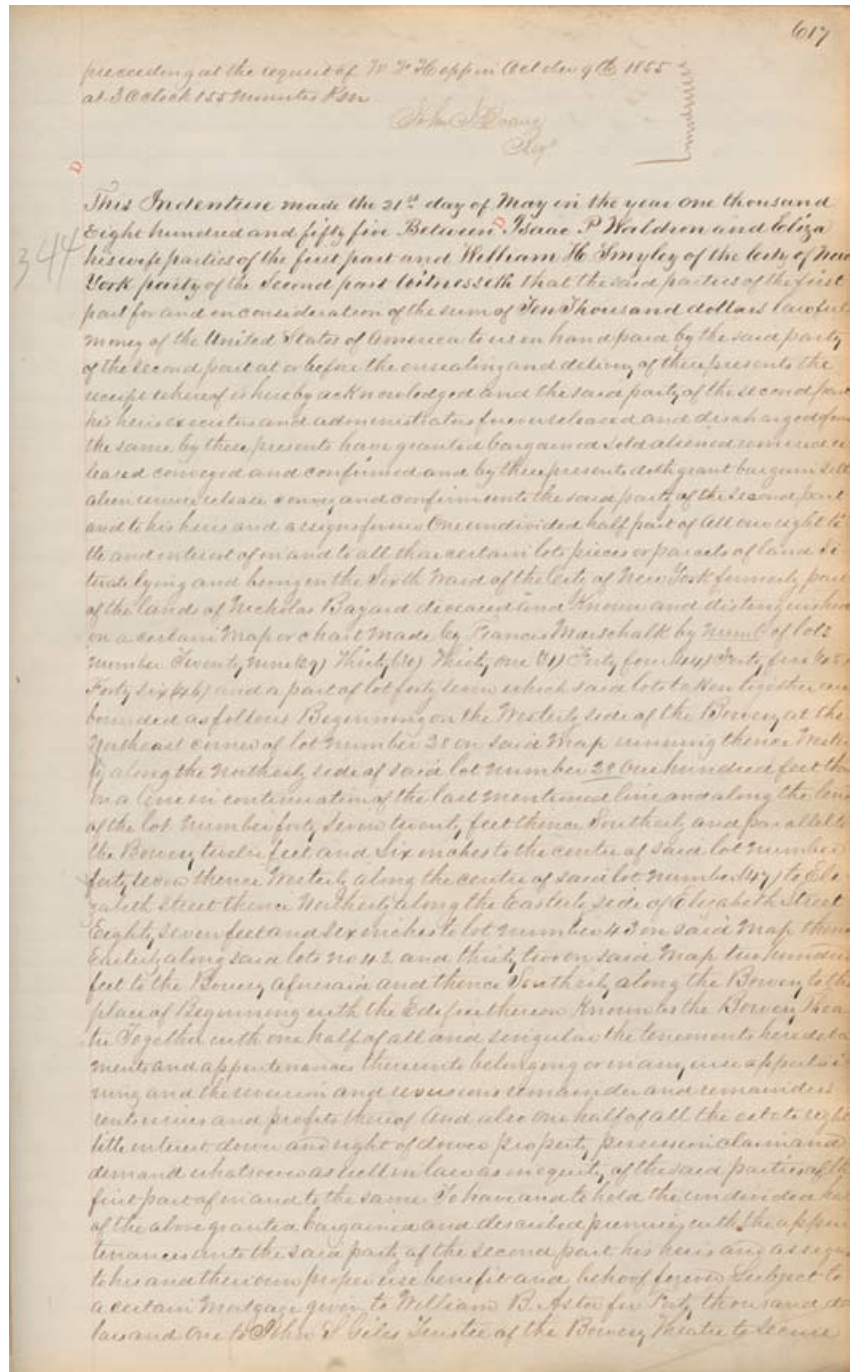 617
preceeding at the request of W W Hoppin October 9th 1855
at 3 Oclock 55 Minutes P.M
John J Doane
Reg
D
344
This Indenture made the 21st day of May in the year one thousand
Eight hundred and fifty five Between Isaac P Waldron and Eliza
his wife parties of the first part and William H. Smyley of the City of New
York party of the Second part Witnesseth that the said parties of the first
part for and in consideration of the sum of Ten Thousand dollars lawful
money of the United States of America to us in hand paid by the said party
of the second part at or before the ensealing and delivery of these presents the
receipt whereof is hereby acknowledged and the said party of the second part
his heirs executors and administrators forever released and discharged from
the same by these presents have granted bargained sold aliened remised re
leased conveyed and confirmed and by these presents doth grant bargain sell
alien remise release convey and confirm unto the said party of the second part
and to his heirs and assigns forever One undivided half part of All our right ti
tle and interest of in and to all that certain lots pieces or parcels of land Si
tuate lying and being in the Sixth Ward of the City of New York formerly part
of the lands of Nicholas Bayard deceased and Known and distinguished
on a certain Map or chart Made by Francis Marschalk by Numb of lots
number Twenty nine (29) Thirty (30) Thirty one (31) Forty four (44) Forty five (45)
Forty six (46) and a part of lot forty seven which said lots taken together are
bounded as follows Beginning on the Westerly side of the Bowery at the
Northeast corner of lot number 28 on said Map running thence Wester
ly along the Northerly side of said lot number 28 One hundred feet then
in a line in continuation of the last mentioned line and along the line
of the lot number forty Seven twenty feet thence Southerly and parallel to
the Bowery twelve feet and six inches to the centre of said lot number
forty seven thence Westerly along the centre of said lot number (47) to Eli
zabeth Street thence Northerly along the Easterly side of Elizabeth Street
Eighty seven feet and six inches to lot number 43 on said Map thence
Easterly along said lots no 43 and thirty two on said Map two hundred
feet to the Bowery aforesaid and thence Southerly along the Bowery to the
place of Beginning with the Edifice thereon Known as the Bowery Thea
tre Together with one half of all and singular the tenements heredita
ments and appurtenances thereunto belonging or in any wise appertai
ning and the reversion and reversions remainder and remainders
rents issues and profits thereof And also one half of all the estate right
title interest dower and right of dower property possession claim and
demand whatsoever as well in law as in equity of the said parties of the
first part of in and to the same To have and to hold the undivided half
of the above granted bargained and described premises with the appur
tenances unto the said party of the second part his heirs and assigns
to his and their own proper use benefit and behoof forever Subject to
a certain Mortgage given to William B. Astor for Forty thousand dol
lars and One to John S Giles Trustee of the Bowery Theatre to secure